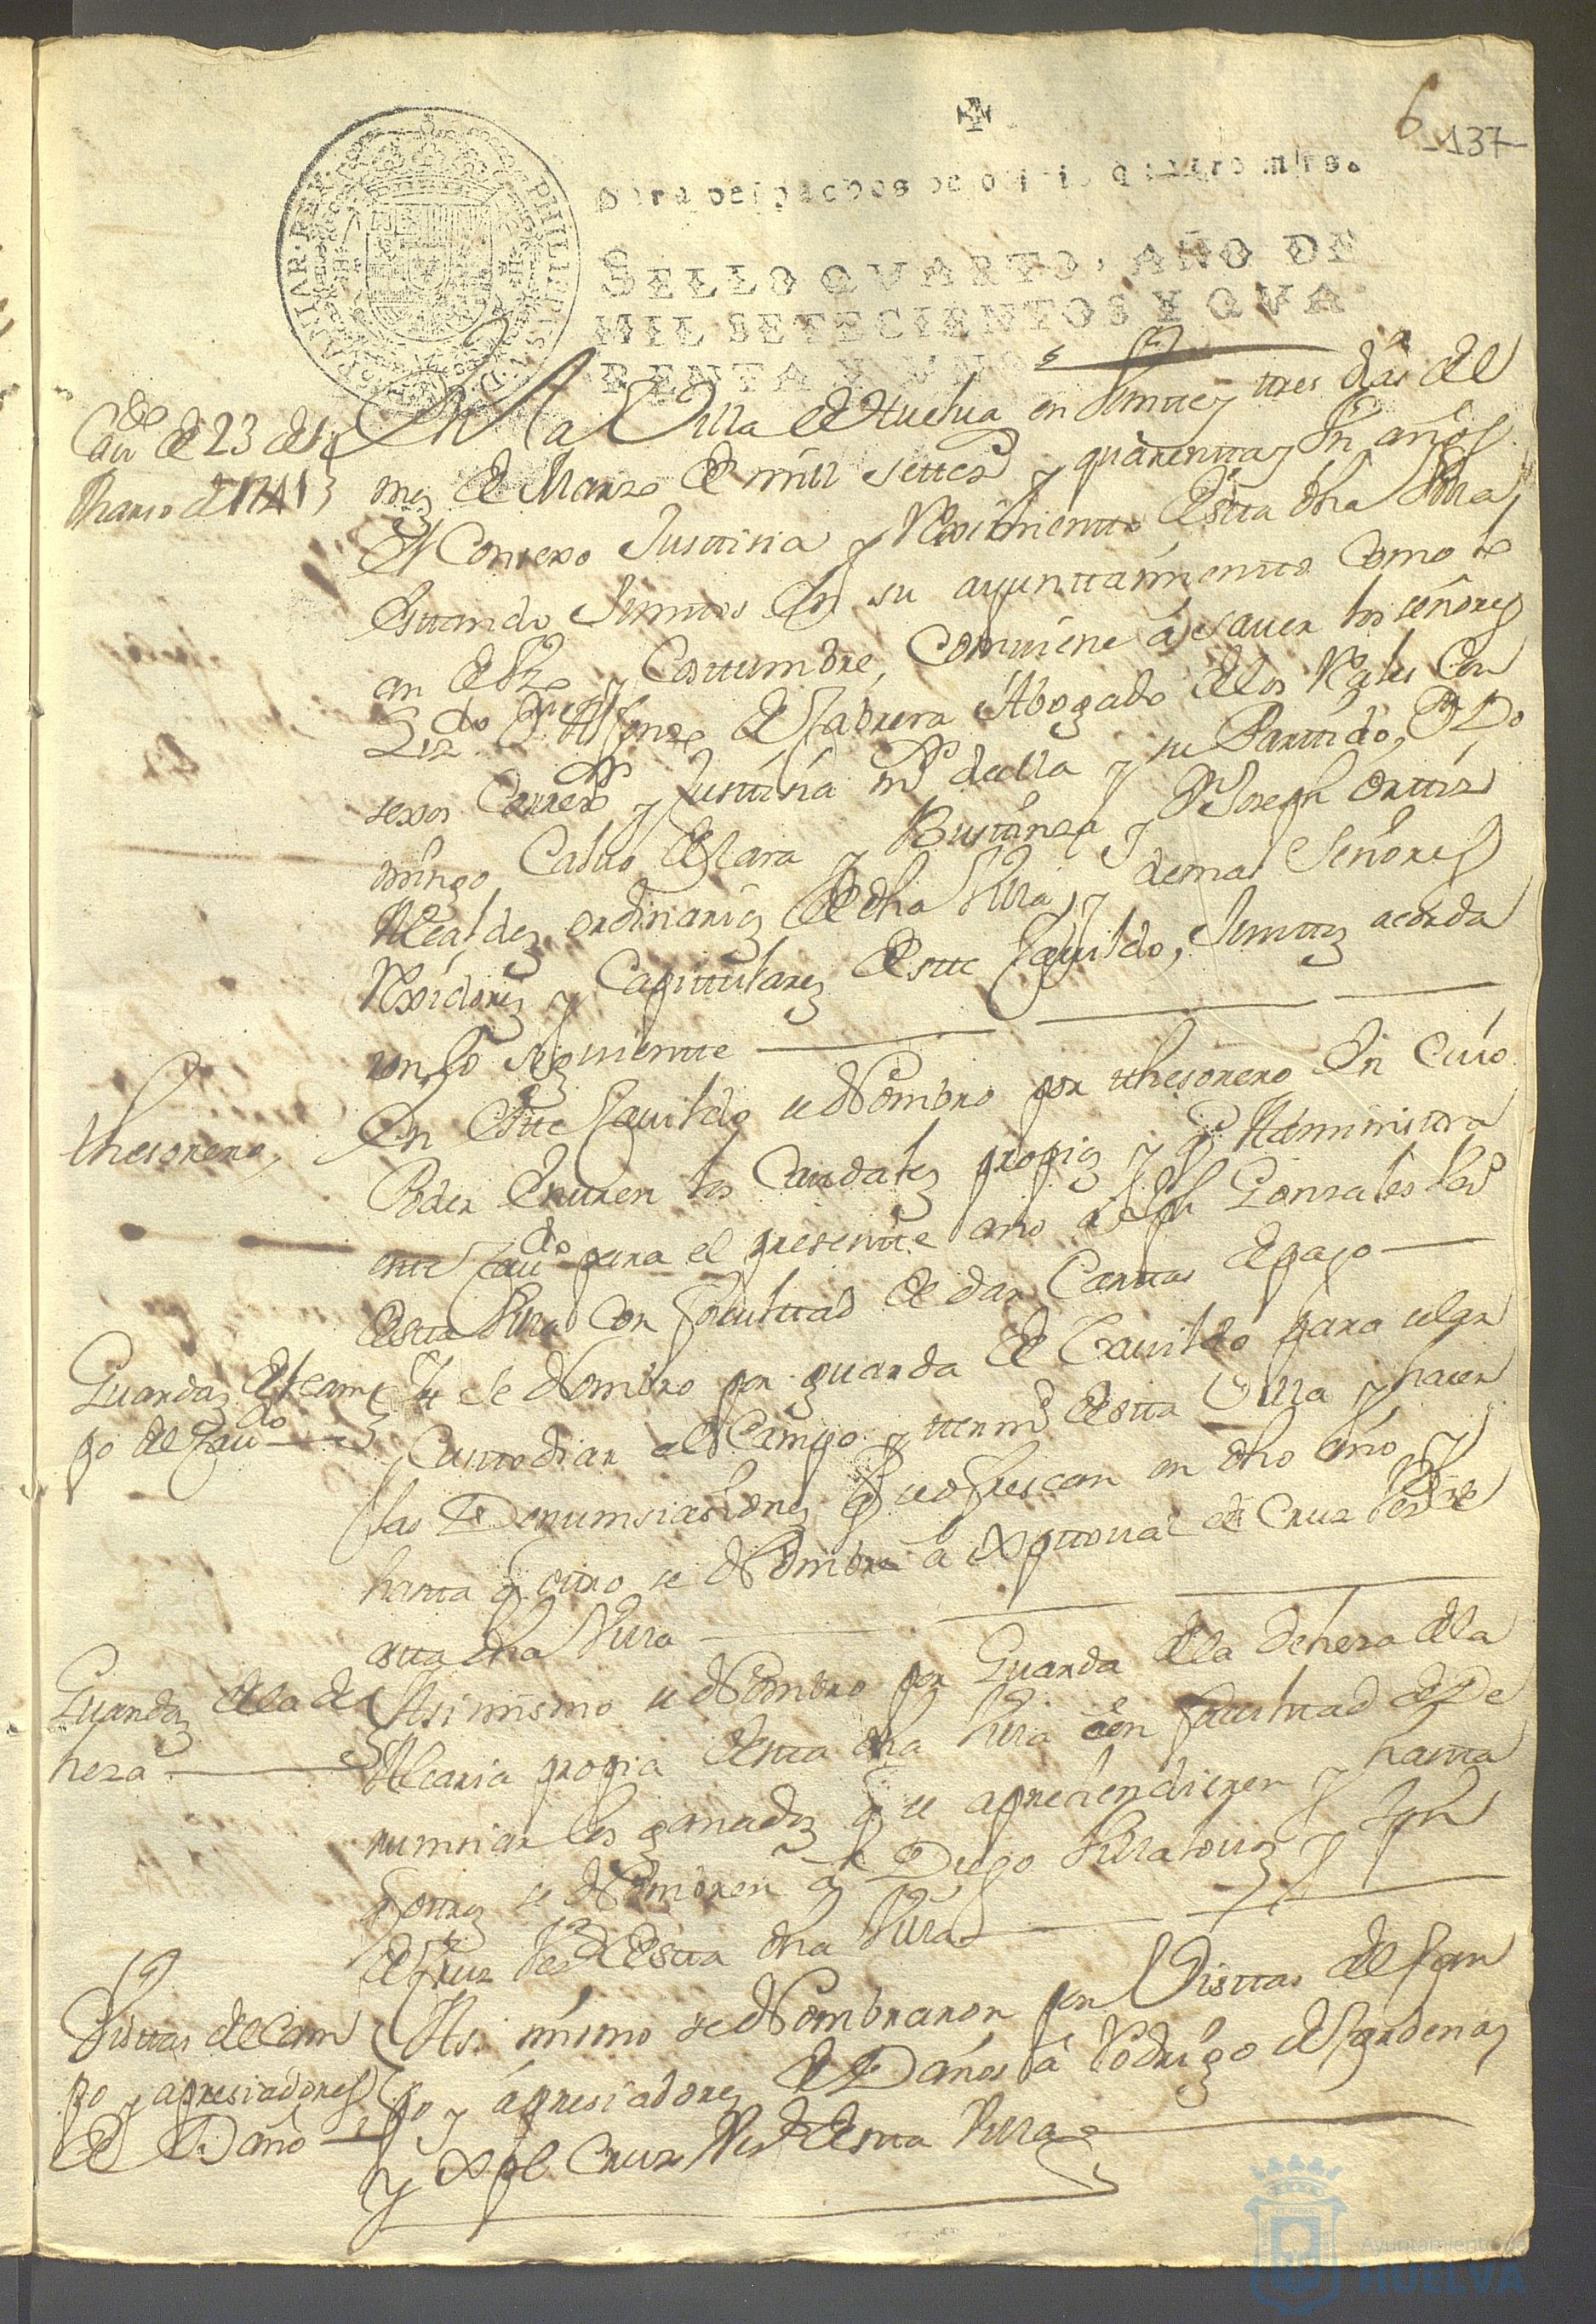 6
-137-
Para despachos de oficio quatro mrs.
SELLO QVARTO, AÑO DE
MIL SETECIENTOS Y QVA
RENTA Y VNO
PHILIPPUS V D G HISPANIAR REX
Cavdo de 23 de
Marzo de 1741
En la Villa de Huelva en Veinte y tres dias del
mes de Marzo de mill settezs y quarentta y Un años
El Consexo Justtisia y Reximientto destta dha Villa
Esttando Junttos en su ayunttamientto como lo
an de Uzo y Costtumbre, Combiene á saver los señores
Lizdo Dn Alfonzo de Cabrera Abogado de los Rales Con
sexos Correxor y Justisia mr della y su Parttido, Dn Do
mingo Calvo de Lara y Busttanza y Dn Joseph Orttiz
Alcaldes ordinarios de dha Villa, y demas Señores
Rexidores y Capittulares deste Cavildo, Junttos acorda
ron lo siguientte
thesorero,
En Este Cavildo se Nombro por thesorero En Cuio
Poder Entren los Caudales propios y q Administra
este Cavdo para el presentte año a Gonzales Vesº
destta Villa con facultad de dar Carttas de pago
Guardas del cam
po de Cavdo
Y se Nombro por guarda de Cavildo para celar
Custtodiar el Campo y ttermo de estta Villa y hacer
las Denumsiasiones q se ofrescan en dho año, y
hastta q otro se Nombre a Xpttoval de Cruz Vesº de
estta dha Villa
Guardas de la de
heza
Asimismo se Nombro por Guarda de la Deheza de la
Alcaria propia destta dha Villa con facultad de De
numsiar los ganados q se aprehendieren y hastta
q ottros se Nombren a Diego Villalovos y Jph
de Cruz Vesos de Estta dha Villa
Visttas de Cam
po y apresiadores
de Daño
Asi mismo se Nombraron por Visttas de Cam
po y ápresiadores de Daños á Rodrigo de Cardenas
y Xpl Cruz Vesos de estta Villa
Ayuntamiento de
HUELVA